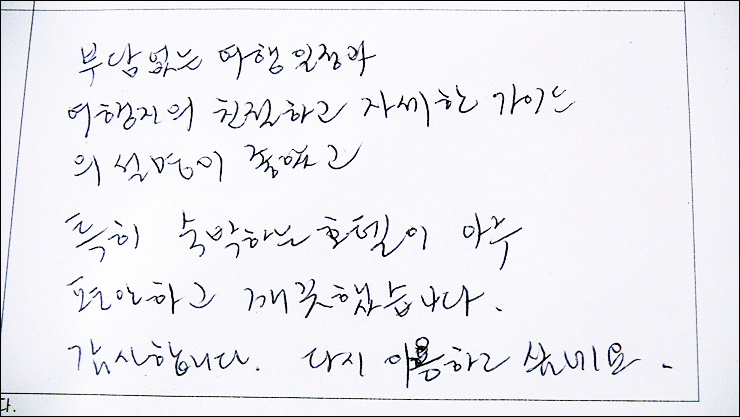 부담없는 여행일정과
여행지의 친절하고 자세한 가이드
의 설명이 좋았고
특히 숙박하는 호텔이 아주
편안하고 깨끗했습니다.
감사합니다. 다시 이용하고 싶네요.
다.